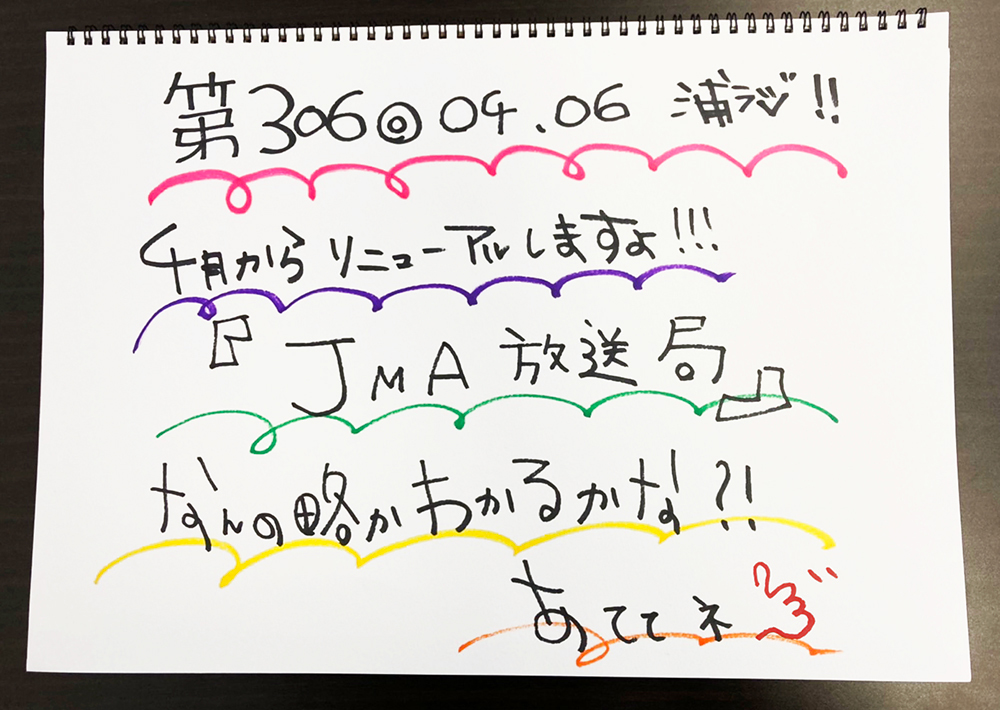 第306回 04.06 浦ラジ!!
4月から リニューアルしますよ!!!
『JMA 放送局』
なんの略かわかるかな?!
あててネ